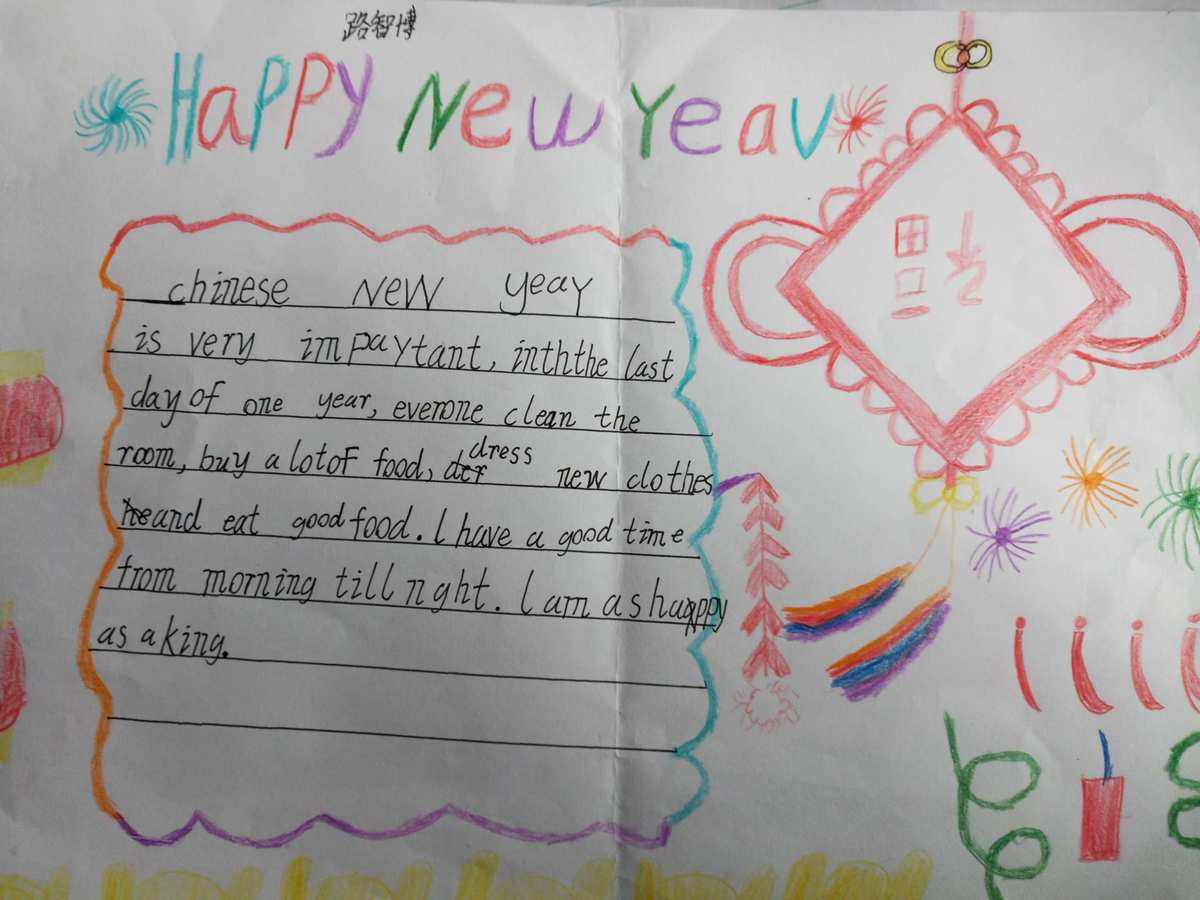 路智博
Happy New Year
chinese New yeay
is very impaytant, inththe last
day of one year, everone clean the
room, buy a lotof food, dress new clothes
and eat good food. I have a good time
from morning till nght. I am as happy
as a king.
福